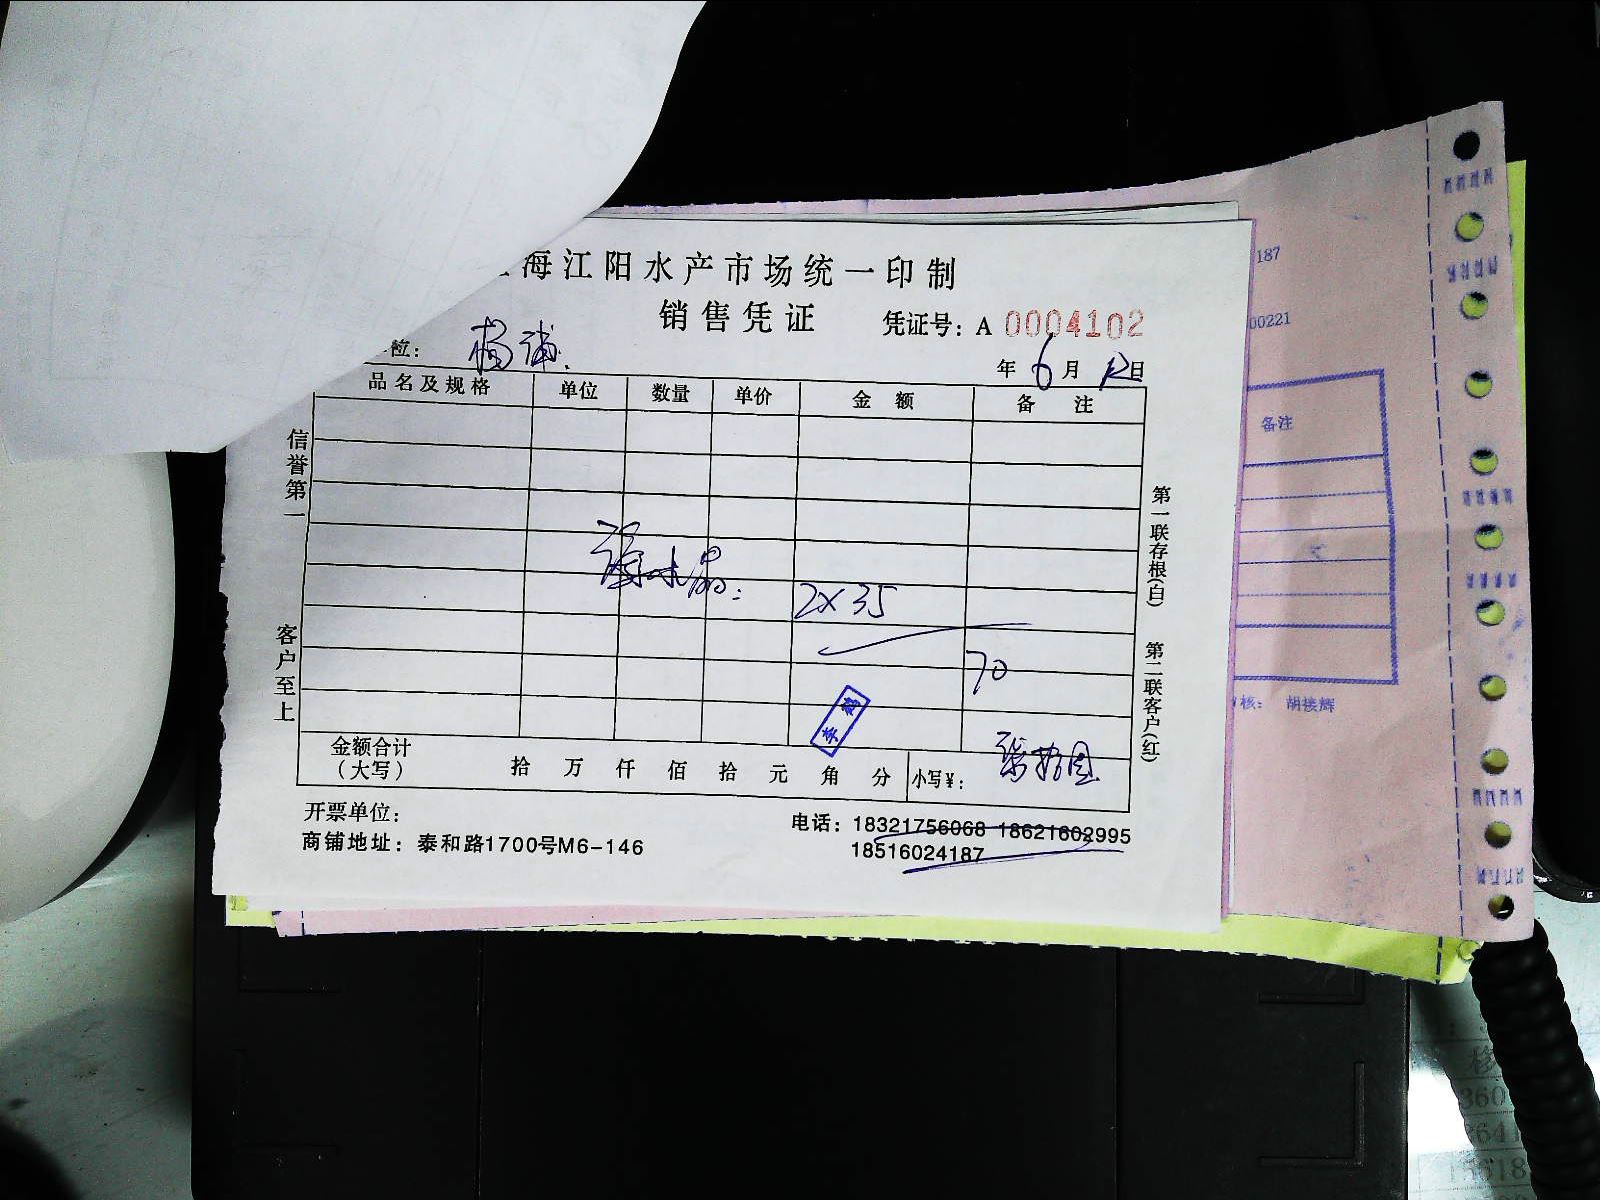 海江阳水产市场统一印制
销售凭证
凭证号：A 0004102
位： 杨浦
年 6 月 12 日
品名及规格 单位 数量 单价 金额 备注
信誉第一
客户至上
2×35
70
金额合计（大写） 拾 万 仟 佰 拾 元 角 分 小写¥： 柒拾圆
开票单位：
商铺地址：泰和路1700号M6-146
电话：18321756068 18621602995
18516024187
第一联存根(白)
第二联客户(红)
187
00221
备注
核： 胡接辉